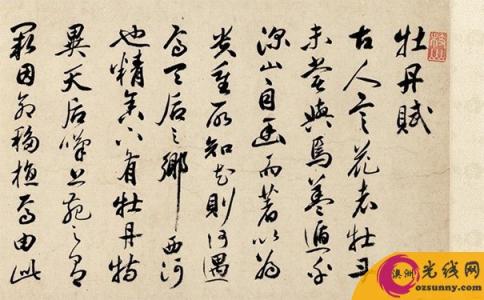 牡丹賦
古人言花者牡丹
未嘗與焉蓋遁乎
深山自幽而著以為
貴重所知花則何遇
焉天后之鄉西河
也精舍下有牡丹特
異天后嘆上苑之有
闕因命移植焉由此
澳洲光线网
ozsunny.com